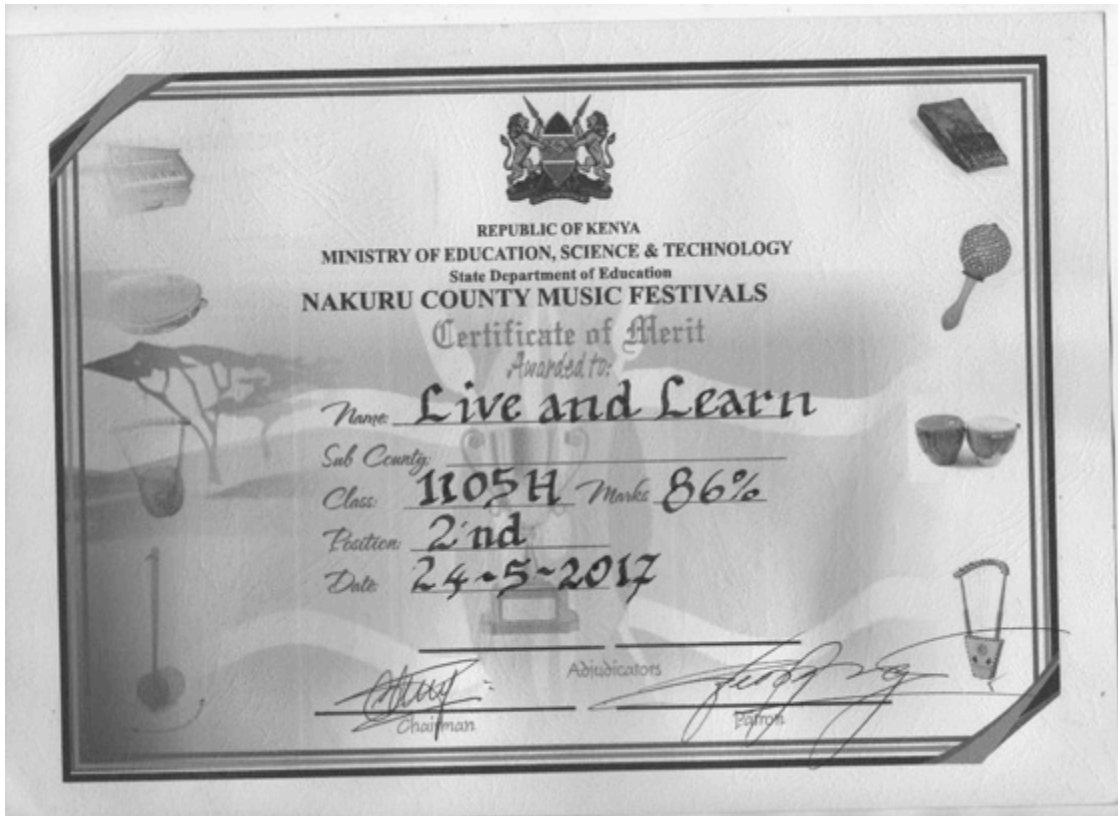 REPUBLIC OF KENYA
MINISTRY OF EDUCATION, SCIENCE & TECHNOLOGY
State Department of Education
NAKURU COUNTY MUSIC FESTIVALS
Certificate of Merit
Awarded to:
Name: Live and Learn
Sub County:
Class: 1105H Marks 86%
Position: 2nd
Date: 24-5-2017
Adjudicators
Chairman Patron